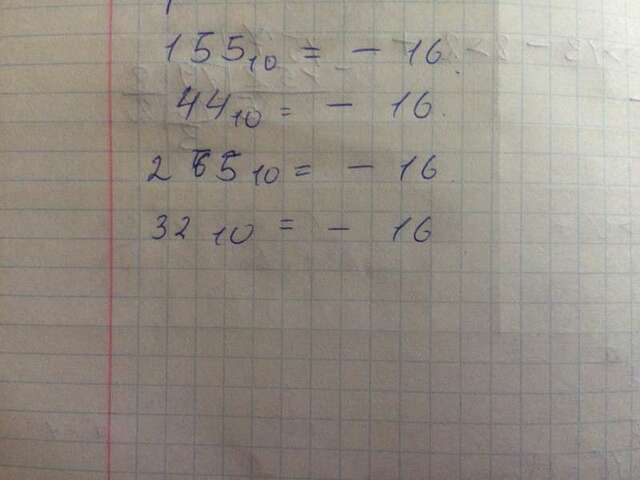 155₁₀ = – 16
44₁₀ = – 16
265₁₀ = – 16
32₁₀ = – 16